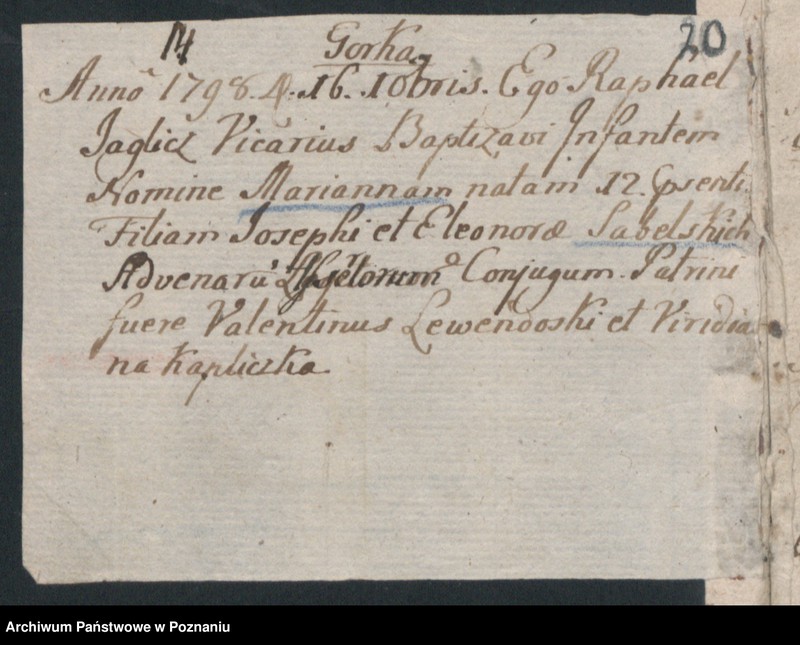 14 20
Gorka
Anno 1798. D. 16. 10bris. Ego Raphael
Jaglicz Vicarius Baptizavi Infantem
Nomine Mariannam natam 12.
Filiam Josephi et Eleonoræ Sabelskich
Advenarū Conjugum. Patrini
fuere Valentinus Lewendoski et Viridia
na Kapliczka
Archiwum Państwowe w Poznaniu